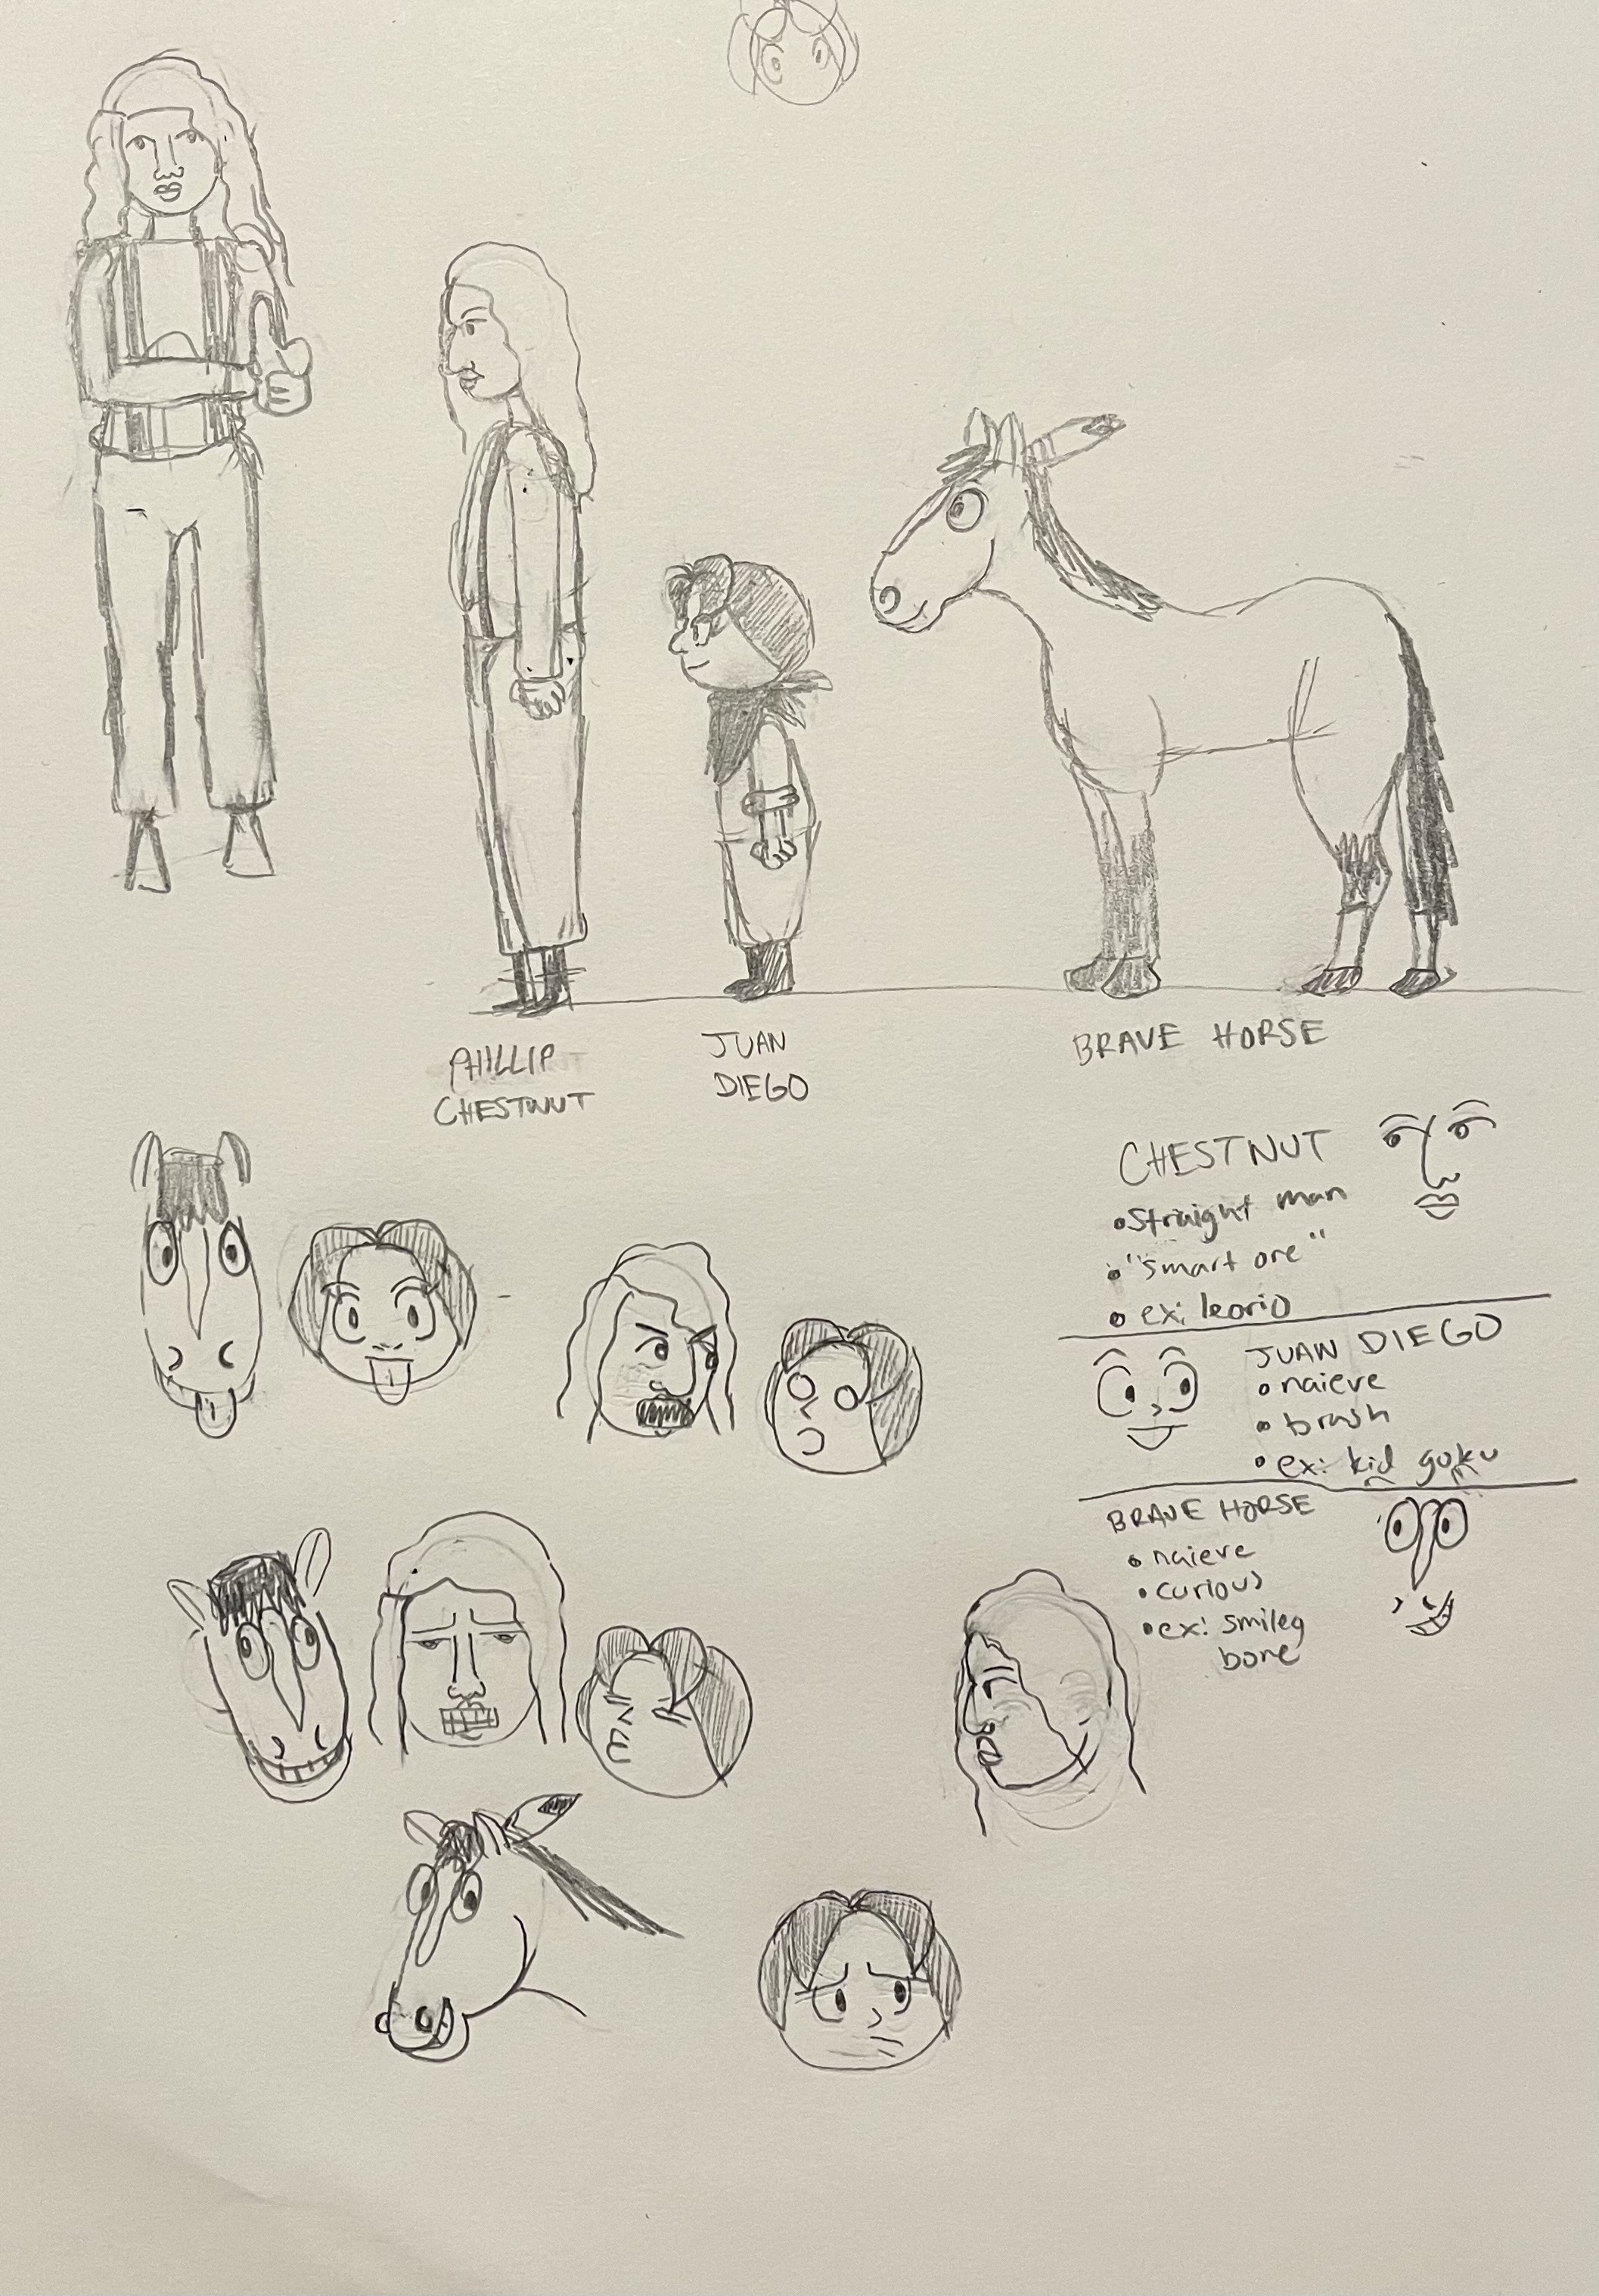 PHILLIP
CHESTNUT
JUAN
DIEGO
BRAVE HORSE
CHESTNUT
• Straight man
• "smart one"
• ex: leorio
JUAN DIEGO
• naieve
• brash
• ex: kid goku
BRAVE HORSE
• naieve
• curious
• ex: smiley
bone